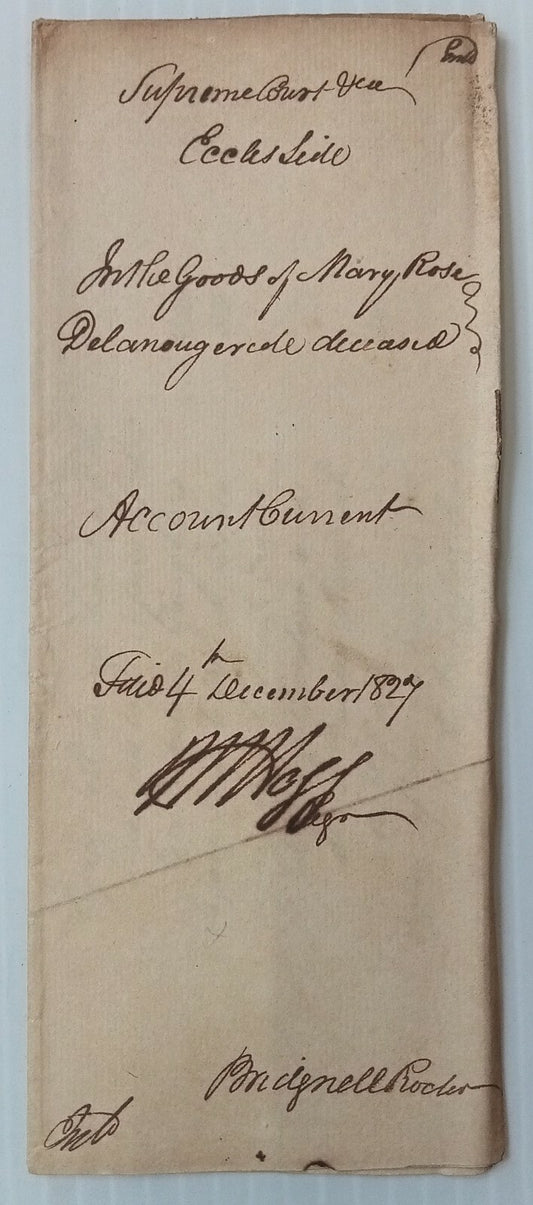 Entd
Supreme Court &ca
Eccles Side
In the Goods of Mary Rose
Delanougerede deceased
Account Current
Filed 4th December 1827
Regr
Bridgnell Proctor